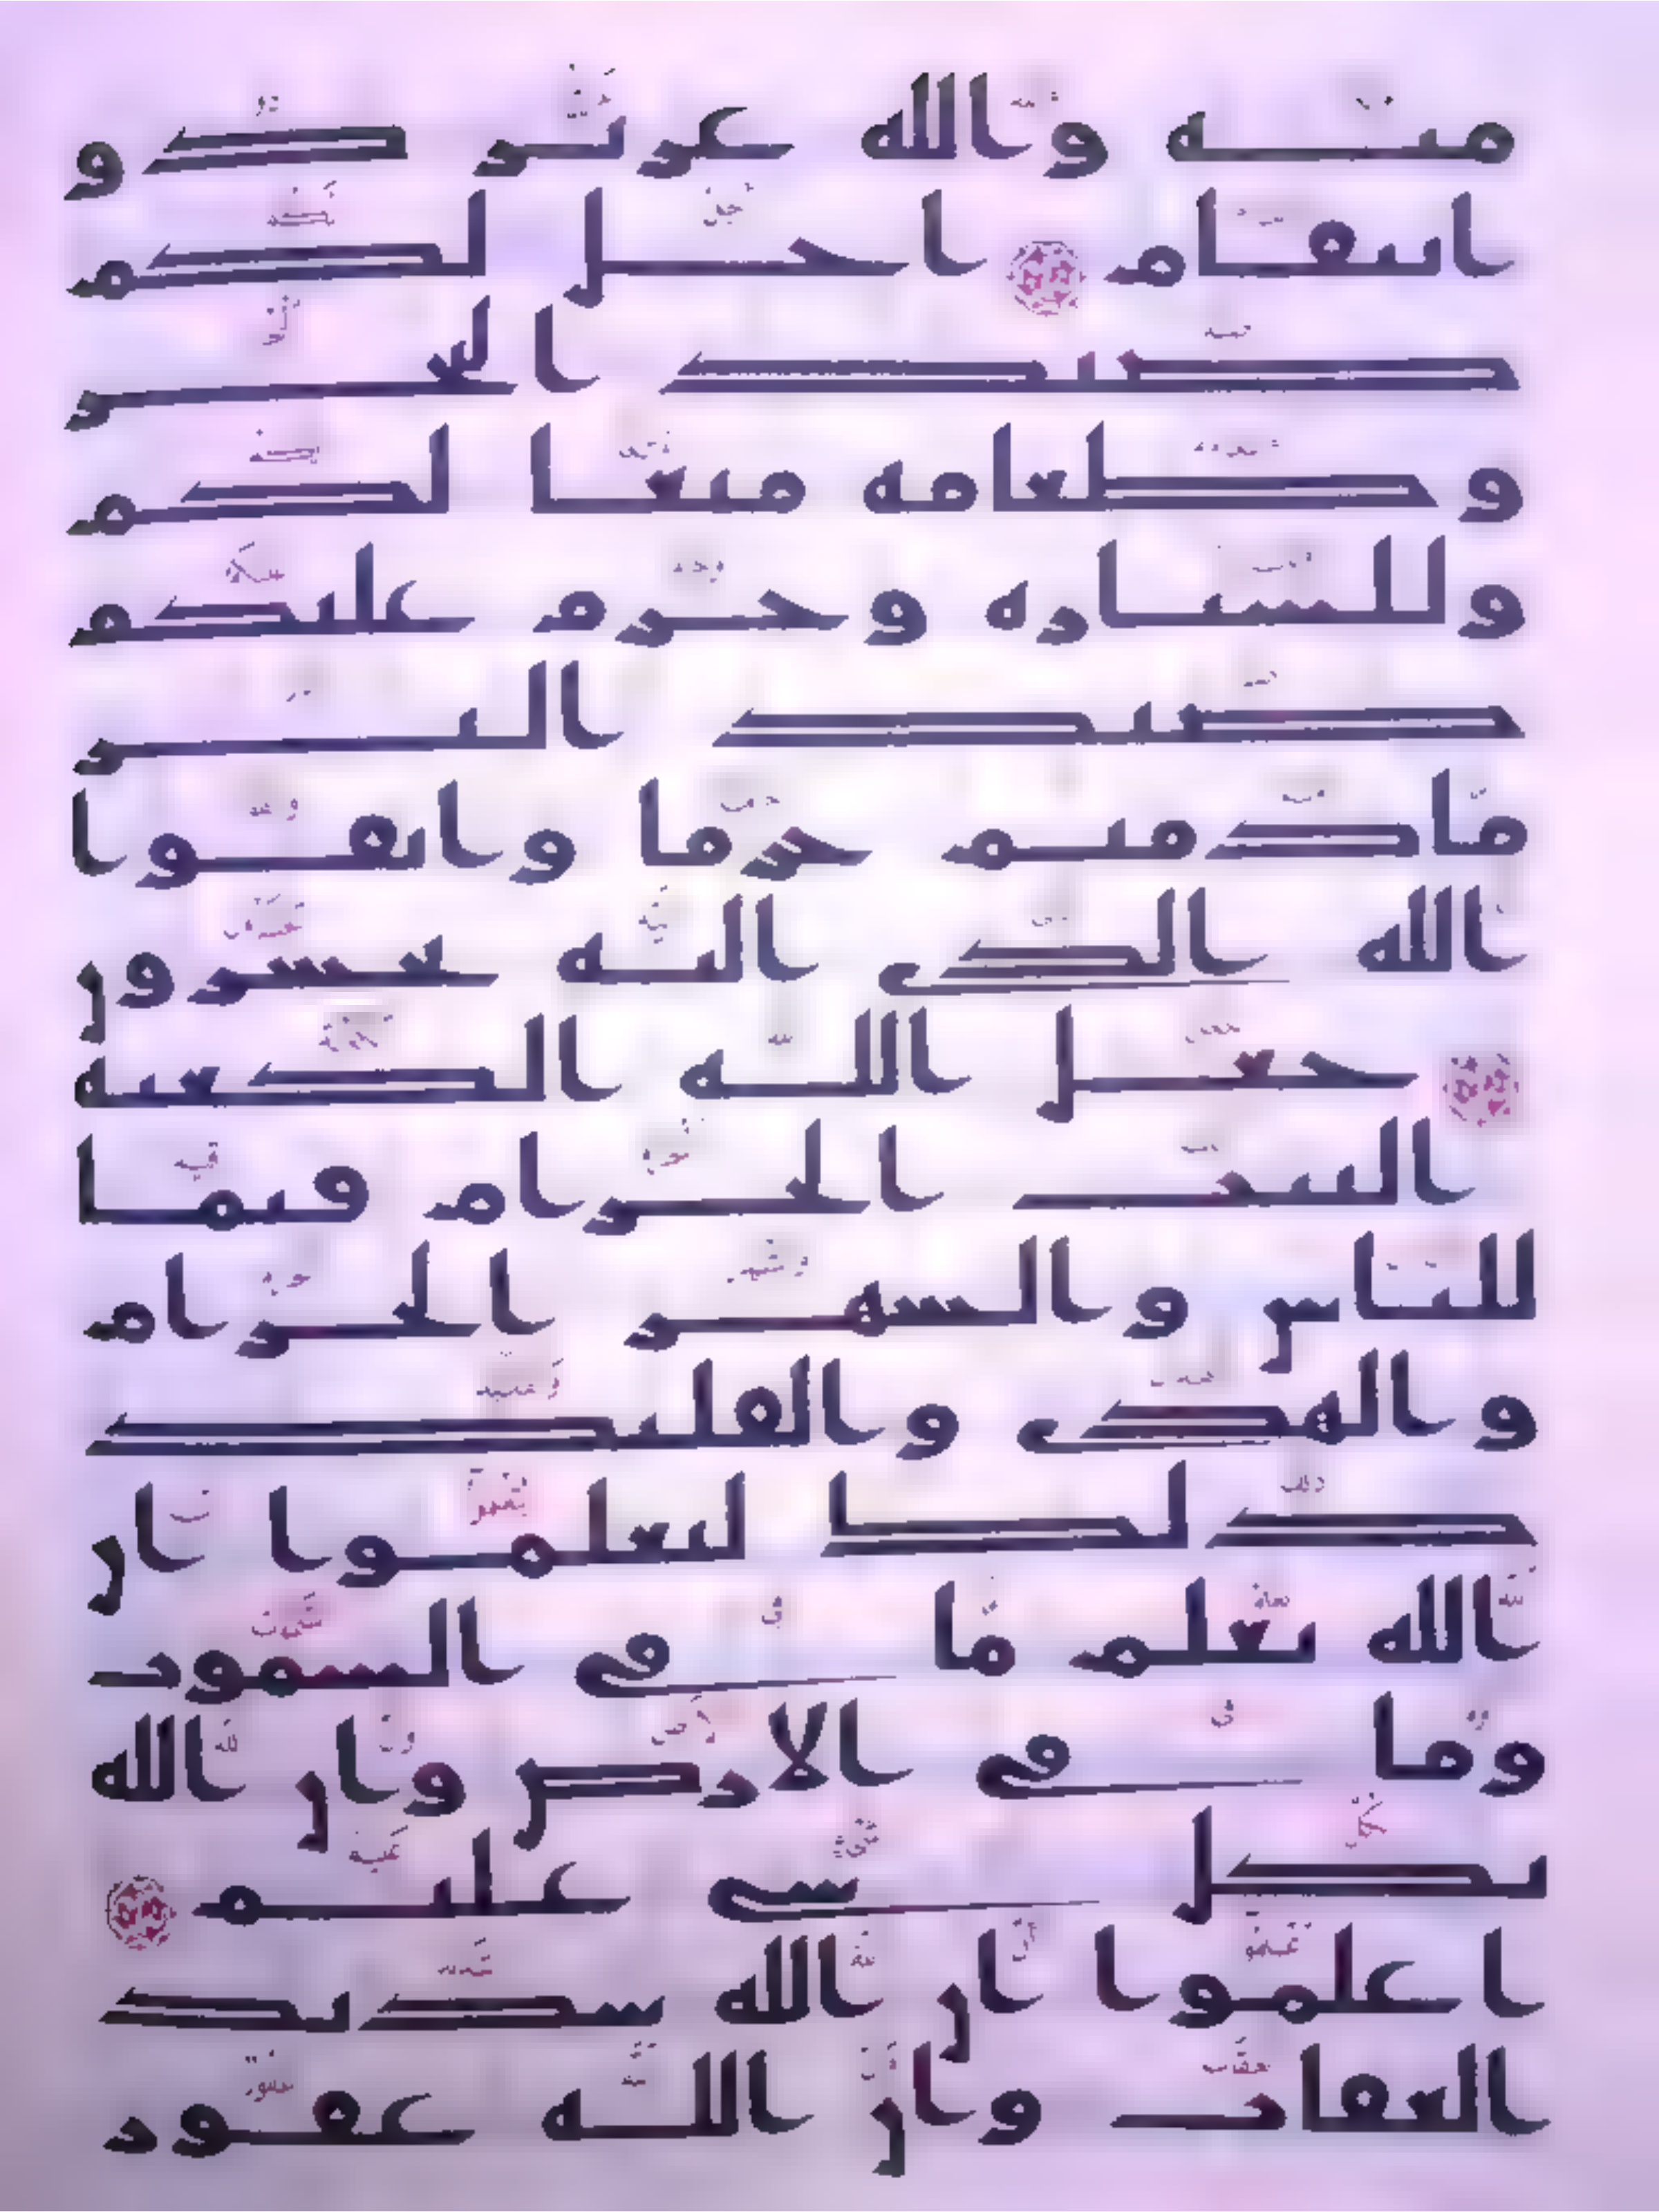 منه والله عزيز ذو
انتقام احل لكم
صيد البحر
وطعامه متعا لكم
وللسياره وحرم عليكم
صيد البر
ما دمتم حرما واتقوا
الله الذي اليه تحشرون
جعل الله الكعبة
البيت الحرام قيما
للناس والشهر الحرام
والهدي والقليد
ذلك لتعلموا ان
الله يعلم ما في السموت
وما في الارض وان الله
بكل شي عليم
اعلموا ان الله شديد
العقاب وان الله غفور